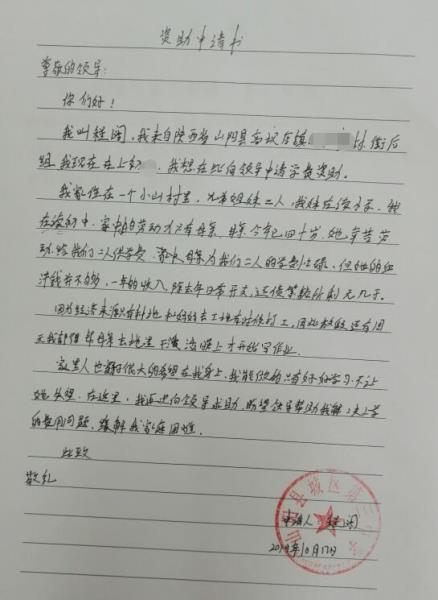 资助申请书
尊敬的领导:
你们好!
我叫程闯,我来自陕西省山阳县高坝店镇 村街后
组,我现在在上初 ,我想在此向领导申请学费资助。
我家住在一个小山村里,兄弟姐妹二人,我妹在读小学,我
在读初中,家中的劳动力只有母亲,母亲今年已四十岁,她辛苦劳
动,给我们二人供学费,家中母亲为我们二人的学费忙碌,但她的血
汗钱并不多,一年的收入,除去每日常开支,还债等 所剩无几了。
因为经济来源有种地和妈妈去工地有时候打工,因此 还有周
天我都得帮母亲去地里干活,晚上才开始写作业。
家里人也都有很大的希望在我身上,我能做的只有好好学习,不让
她失望。在这里,我再次向领导求助,盼望领导帮助我解决上学
的费用问题,缓解我家庭困难。
此致
敬礼
申请人:程闯
2019年10月17日
山阳县城区第三